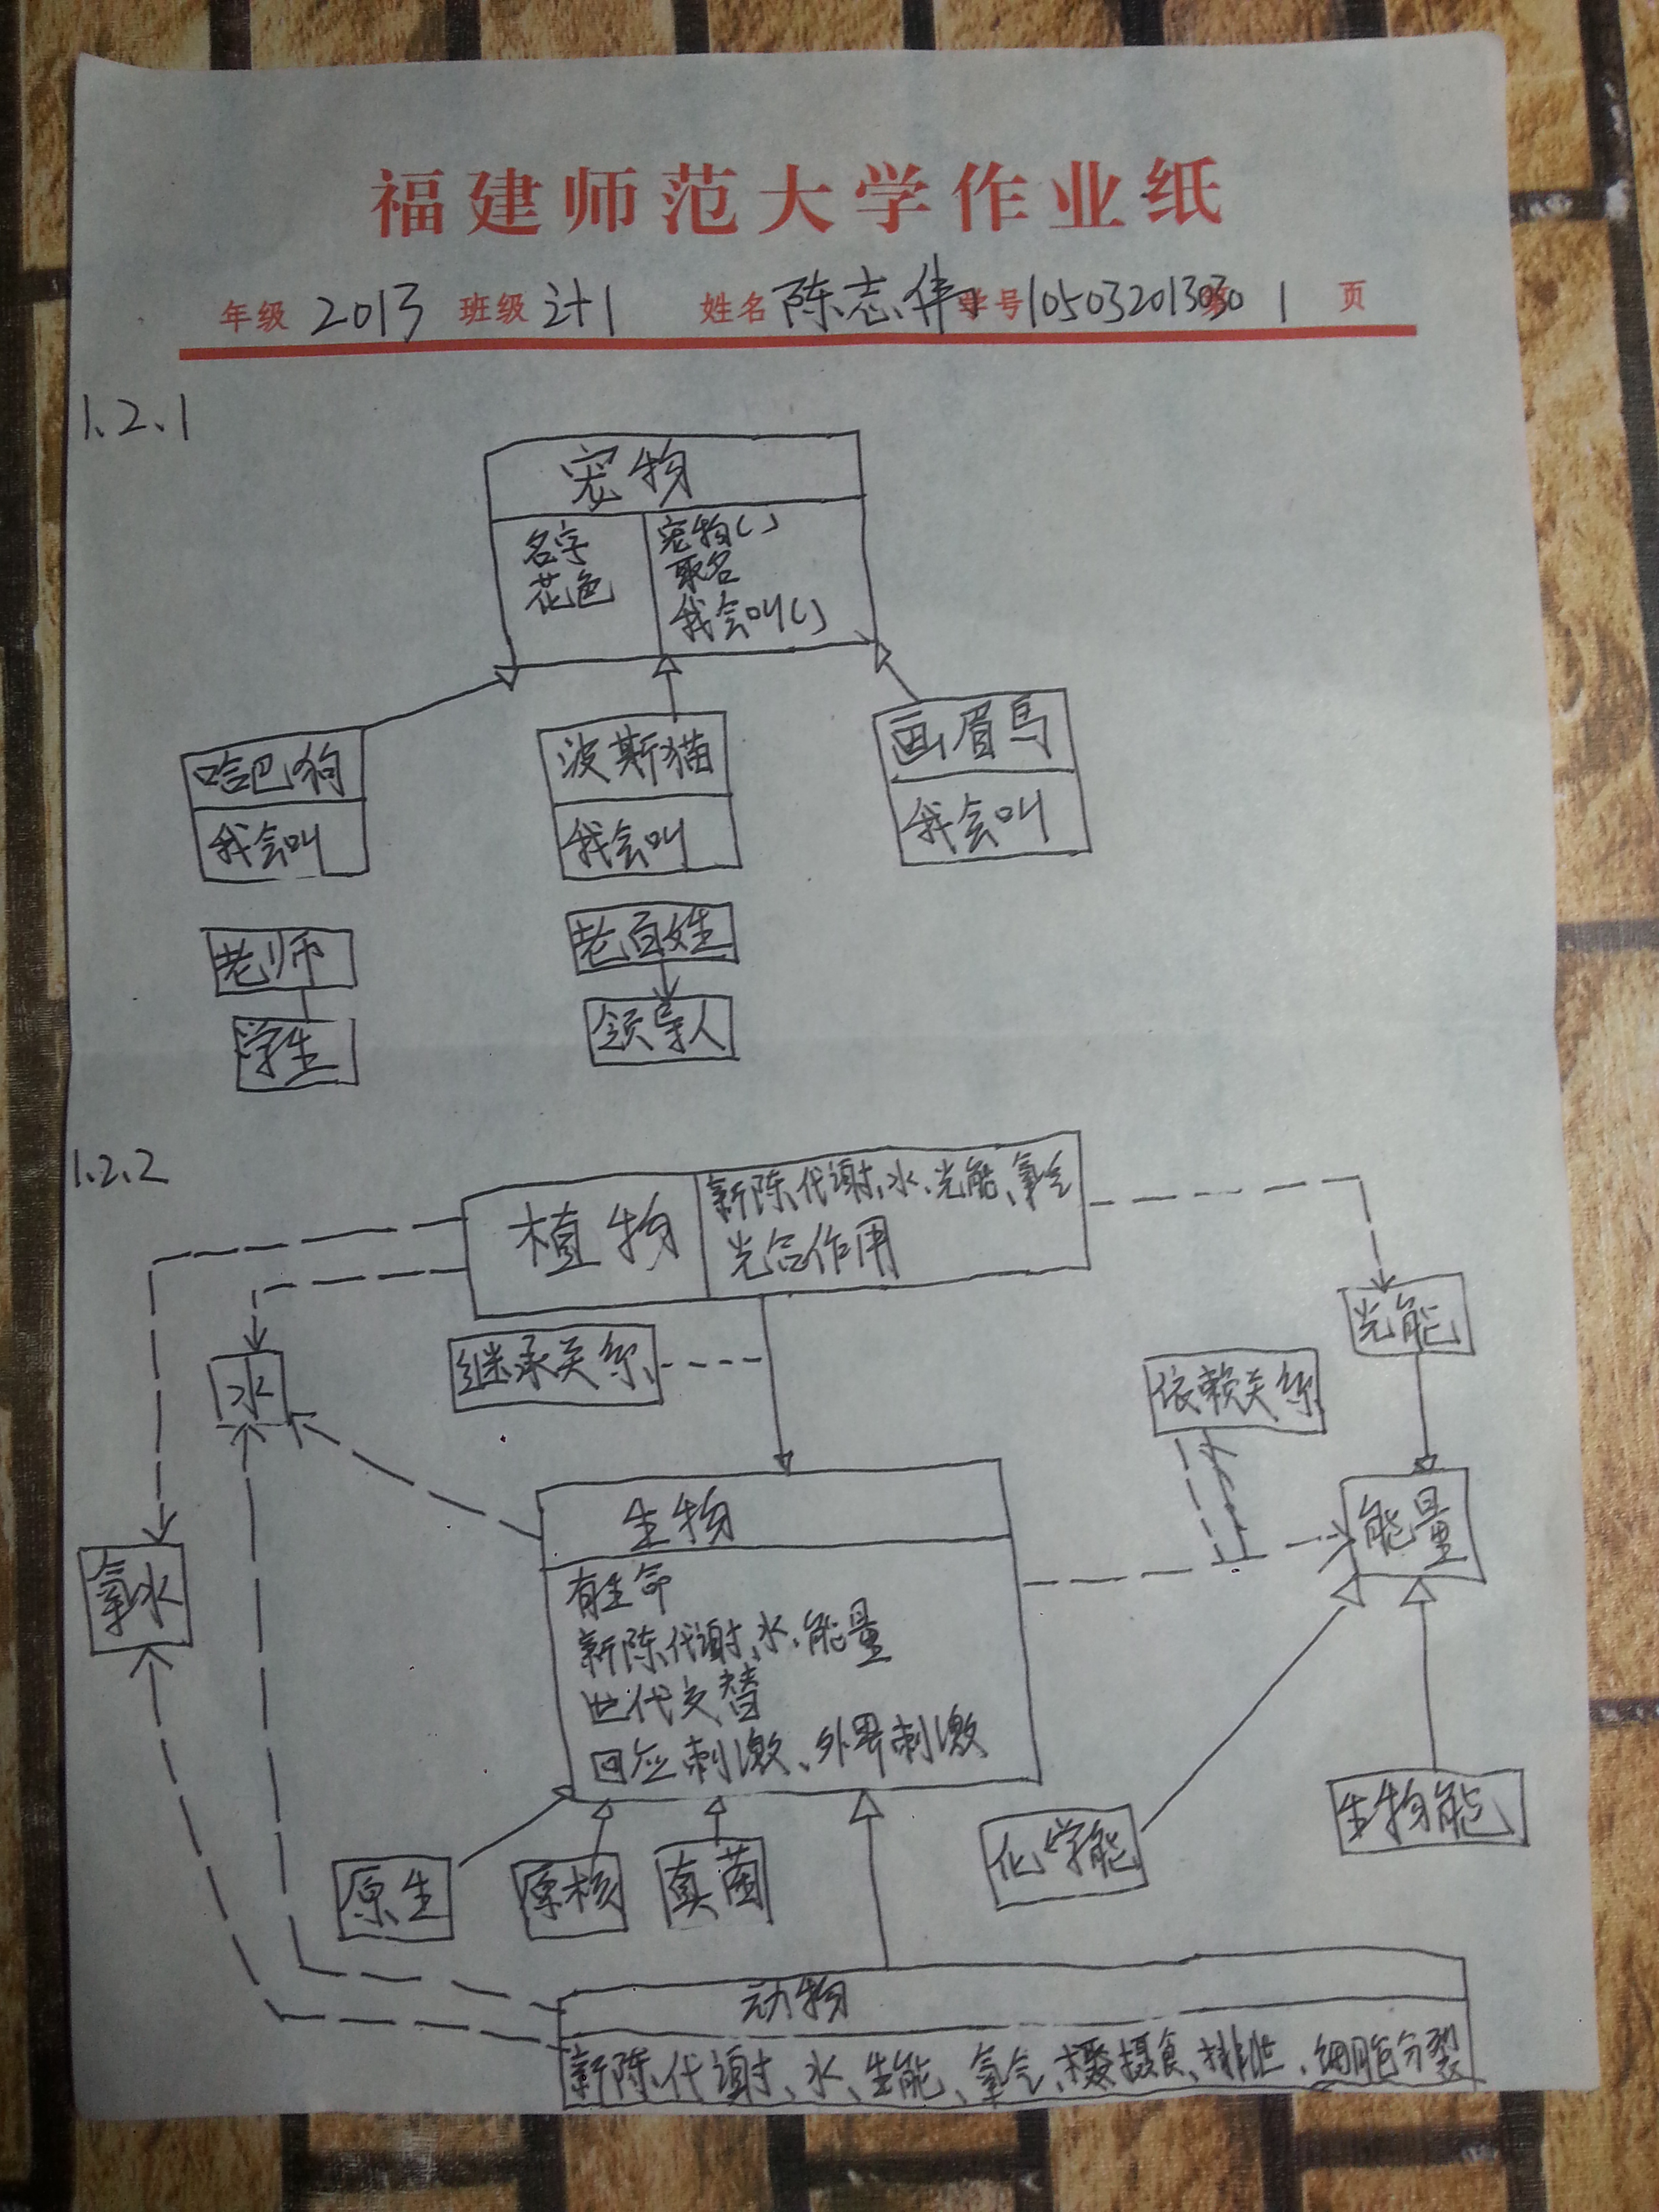 福建师范大学作业纸
年级 2013 班级 计1 姓名 陈志伟 学号 105032013030 1 页
1.2.1
宠物
名字
花色
宠物()
取名
我会叫()
哈巴狗
我会叫
波斯猫
我会叫
画眉鸟
我会叫
老师
学生
老百姓
领导人
1.2.2
植物
新陈代谢、水、光能、氧气
光合作用
光能
继承关系
依赖关系
水
能量
生物
有生命
新陈代谢、水、能量
世代交替
回应刺激、外界刺激
氧水
原生
原核
真菌
化学能
生物能
动物
新陈代谢、水、生能、氧气、摄食、排泄、细胞分裂